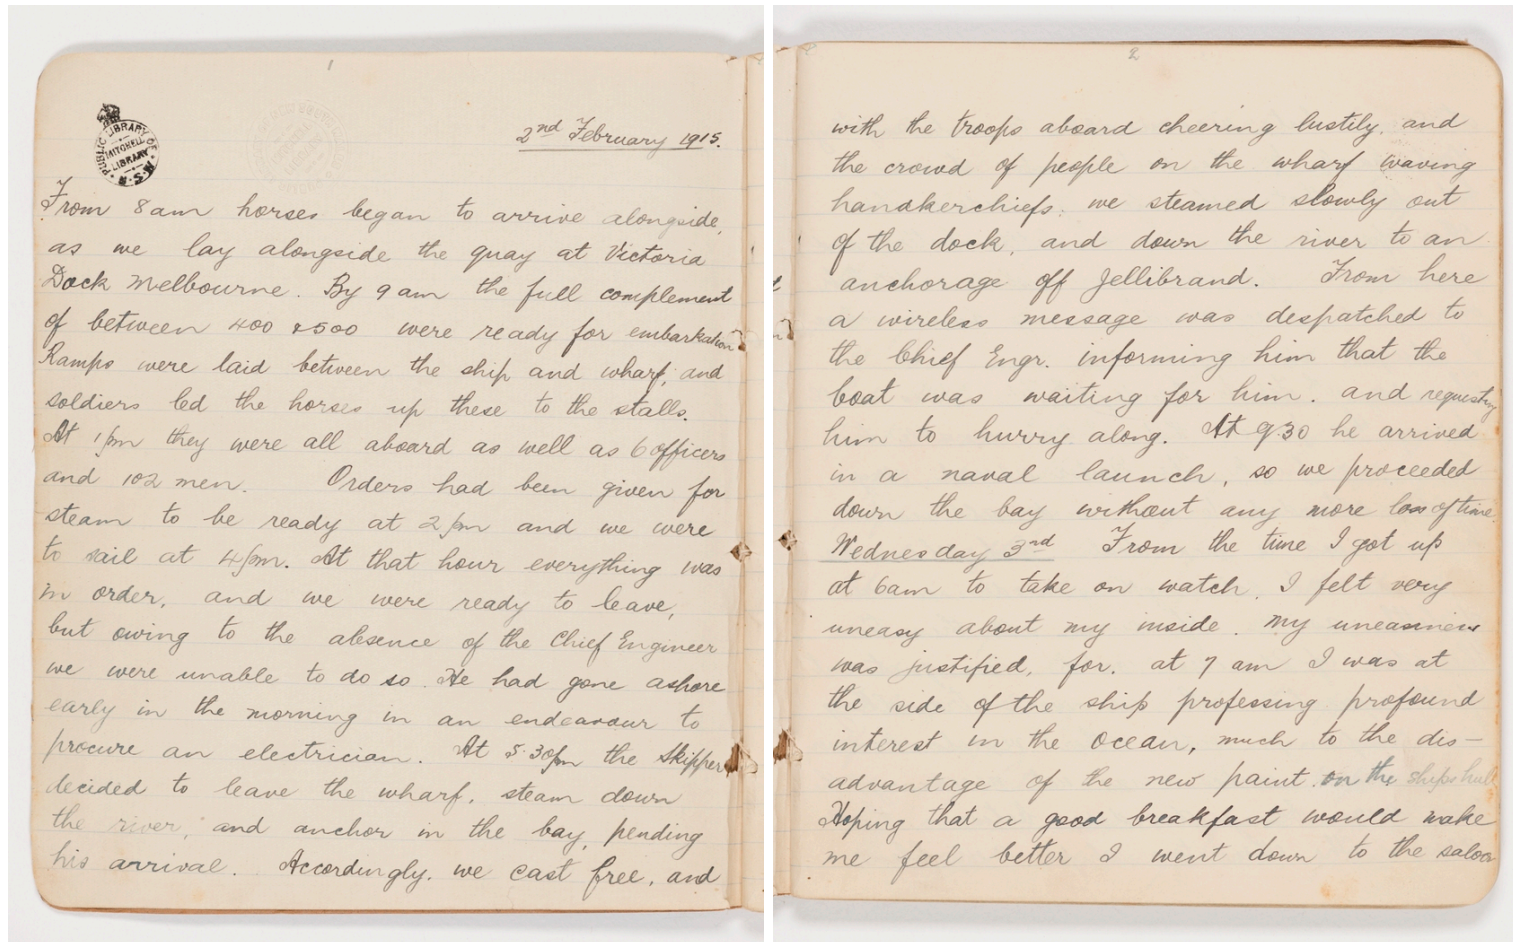 1
PUBLIC LIBRARY OF N.S.W.
MITCHELL
LIBRARY
2nd February 1915.
From 8am horses began to arrive alongside,
as we lay alongside the quay at Victoria
Dock Melbourne. By 9am the full complement
of between 400 & 500 were ready for embarkation
Ramps were laid between the ship and wharf, and
soldiers led the horses up these to the stalls.
At 1pm they were all aboard as well as 6 officers
and 102 men. Orders had been given for
steam to be ready at 2pm and we were
to sail at 4pm. At that hour everything was
in order, and we were ready to leave,
but owing to the absence of the Chief Engineer
we were unable to do so. He had gone ashore
early in the morning in an endeavour to
procure an electrician. At 5.30pm the Skipper
decided to leave the wharf, steam down
the river, and anchor in the bay, pending
his arrival. Accordingly, we cast free, and
2
with the troops aboard cheering lustily, and
the crowd of people on the wharf waving
handkerchiefs, we steamed slowly out
of the dock, and down the river to an
anchorage off Jellibrand. From here
a wireless message was despatched to
the Chief Engr. informing him that the
boat was waiting for him, and requesting
him to hurry along. At 9.30 he arrived
in a naval launch, so we proceeded
down the bay without any more loss of time.
Wednesday 3rd From the time I got up
at 6am to take on watch, I felt very
uneasy about my inside. My uneasiness
was justified, for, at 7 am I was at
the side of the ship professing profound
interest in the ocean, much to the dis-
advantage of the new paint on the ships hull
Hoping that a good breakfast would make
me feel better I went down to the saloon